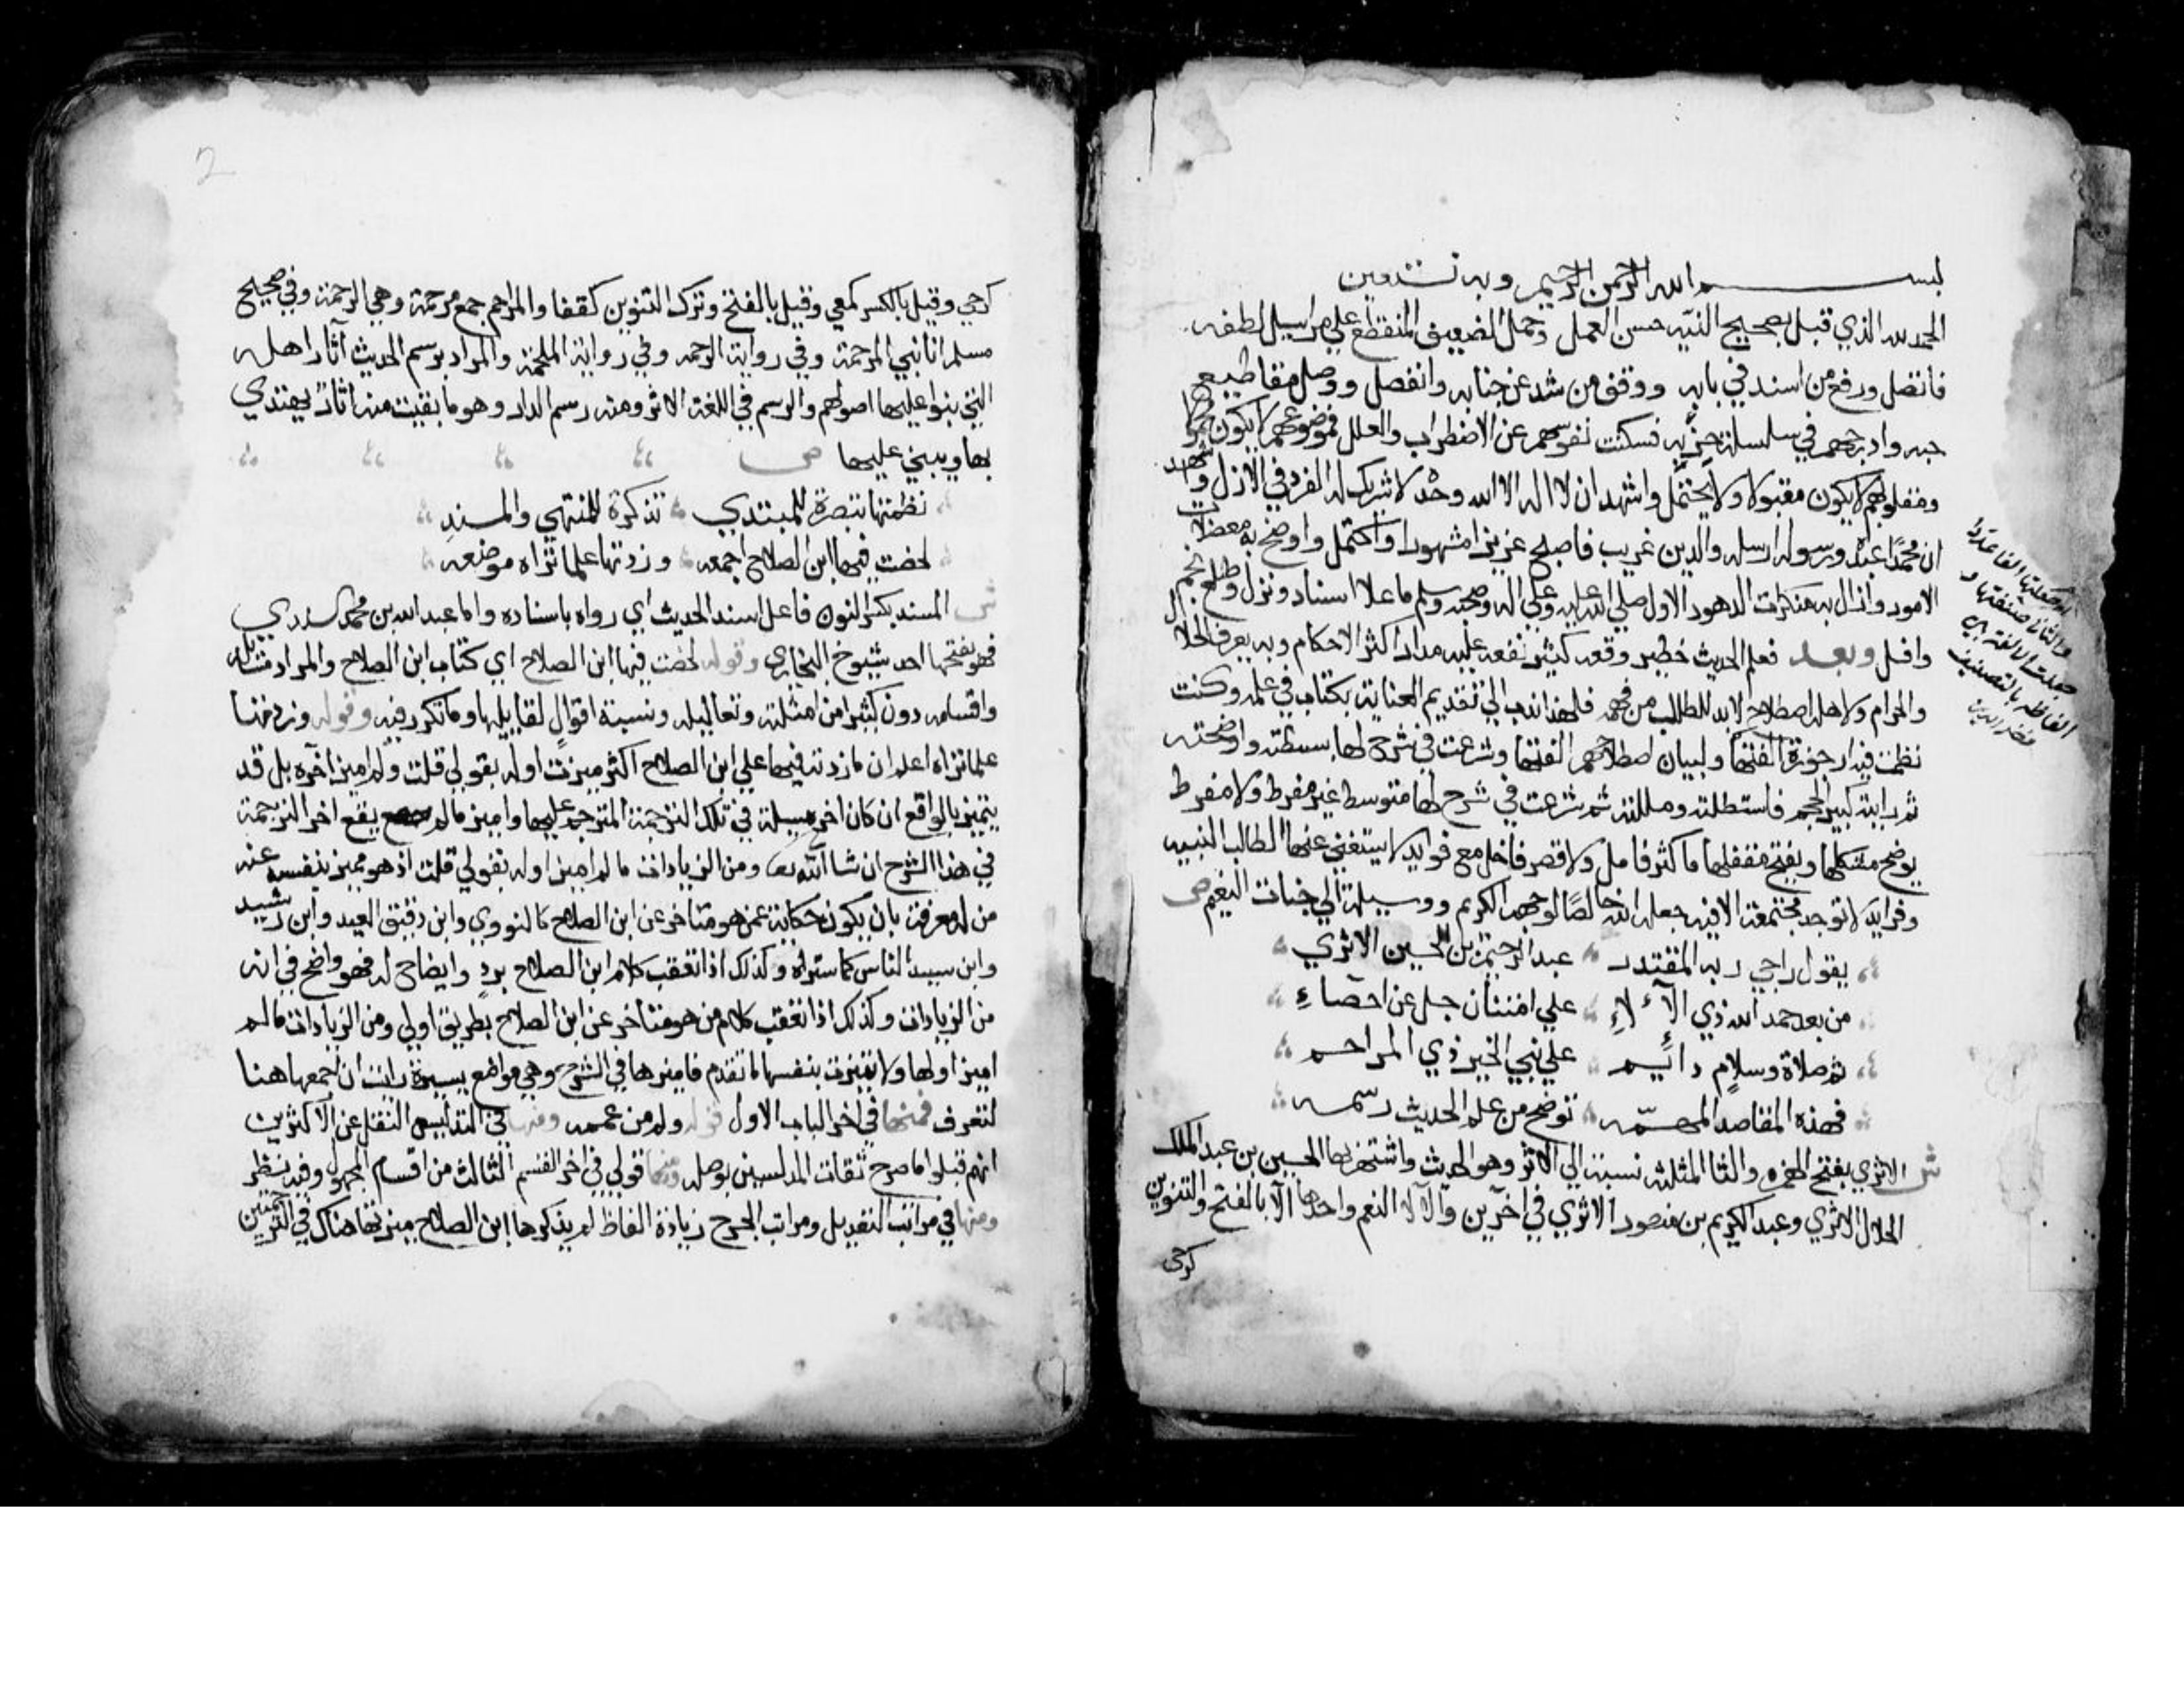 بسم الله الرحمن الرحيم وبه نستعين
الحمد لله الذي قبل بصحيح النيه حسن العمل وحمل الضعيف المنقطع علي مراسيل لطفه
فاتصل ورفع من اسند في بابه ووقف من شد عن جنابه وانفصل ووصل مقاطيع
حبه وادرجهم في سلسلة حزبه فسكنت نفوسهم عن الاضطراب والعلل فموضوعهم لا يكون محمولا
ومقلوبهم لا يكون مقبولا ولا يحتمل واشهد ان لا اله الا الله وحده لا شريك له الفرد في الازل واشهد
ان محمدا عبده ورسوله ارسله والدين غريب فاصبح عزيزا مشهورا واكتمل واوضح به معضلات
الامور وازال به منكرات الدهور الاول صلي الله عليه وعلي اله وصحبه وسلم ما علا اسناد ونزل وطلع نجم
وافل وبعد فعلم الحديث خطير وقعه كثير نفعه عليه مدار اكثر الاحكام وبه يعرف الحلال
والحرام ولاهله اصطلاح لا بد للطالب من فهمه فلهذا ندب الي تقديم العناية بكتاب في علمه وكنت
نظمت فيه ارجوزة الفتها ولبيان اصطلاحهم الفتها وشرعت في شرح لها بسطته واوضحته
ثم رايته كبير الحجم فاستطلته ومللته ثم شرعت في شرح لها متوسط غير مفرط ولا مفرط
يوضح مشكلها ويفتح مقفلها ما كثر فامل ولا قصر فاخل مع فوايد لا يستغني عنها الطالب النبيه
وفرايد لا توجد مجتمعة الا فيه جعله الله خالصًا لوجهه الكريم ووسيلة الي جنات النعيم ص
يقول راجي ربه المقتدر عبد الرحيم بن الحسين الاثري
من بعد حمد الله ذي الآلاءِ علي امتنان جل عن احصاءِ
ثم صلاة وسلامٍ دائم علي نبي الخير ذي المراحم
فهذه المقاصد المهمّه توضح من علم الحديث رسمه
ش الاثري بفتح الهمزه والثا المثلثة نسبة الي الاثر وهو الحديث واشتهر بها الحسين بن عبد الملك
الخلال الاثري وعبد الكريم بن منصور الاثري في اخرين والآلاء النعم واحدها الآ بالفتح والتنوين
كرحي
او جعلتها الفا عددا
والثاني صنفتها و
جعلت الالفة بين
الفاظه بالتصنيف
2
كرحي وقيل بالكسر كمعي وقيل بالفتح وترك التنوين كقفا والمراحم جمع مرحمة وهي الرحمة وفي صحيح
مسلم انا نبي المرحمة وفي رواية الرحمه وفي رواية الملحمة والمراد برسم الحديث آثار اهله
التي بنوا عليها اصولهم والرسم في اللغة الاثر ومنه رسم الدار وهو ما بقيت من اثارٍ يهتدي
بها ويبني عليها ص
نظمتها تبصرة للمبتدي تذكرة للمنتهي والمسندِ
لخصت فيها ابن الصلاح اجمعه وزدتها علما تراه موضعه
ش المسند بكسر النون فاعل اسند الحديث اي رواه باسناده واما عبد الله بن محمد المسندي
فهو بفتحها احد شيوخ البخاري وقوله لخصت فيها ابن الصلاح اي كتاب ابن الصلاح والمراد مسائله
واقسامه دون كثير من امثلته وتعاليله ونسبة اقوال لقايليها وما تكرر فيه وقوله وزدتها
علما تراه اعلم ان ما زدته فيها علي ابن الصلاح اكثره ميزت اوله بقولي قلت ولم اميز آخره بل قد
يتميز بالواقع ان كان اخر مسيلة في تلك الترجمة المترجم عليها واميز ما لم يقع اخر الترجمة
في هذا الشرح ان شا الله تع ومن الزيادات ما لم اميز اوله بقولي قلت اذ هو مميز بنفسه عند
من له معرفة بان يكون حكاية عمن هو متاخر عن ابن الصلاح كالنووي وابن دقيق العيد وابن رشيد
وابن سيد الناس كما ستراه وكذلك اذا تعقب كلام ابن الصلاح بردٍ وايضاح له فهو واضح في انه
من الزيادات وكذلك اذا تعقب كلام من هو متاخر عن ابن الصلاح بطريق اولي ومن الزيادات ما لم
اميز اولها ولا تميزت بنفسها لما تقدم فاميزها في الشرح وهي مواضع يسيرة رايت ان اجمعها هنا
لتعرف فمنها في اخر الباب الاول قوله ولم من عممه ومنها في التدليس النقل عن الاكثرين
انهم قبلوا ما صرح ثقات المدلسين بوصله ومنها قولي في اخر القسم الثالث من اقسام المجهول وفيه نظر
ومنها في مراتب التعديل ومراتب الجرح زيادة الفاظ لم يذكرها ابن الصلاح ميزتها هناك في الترجمتين